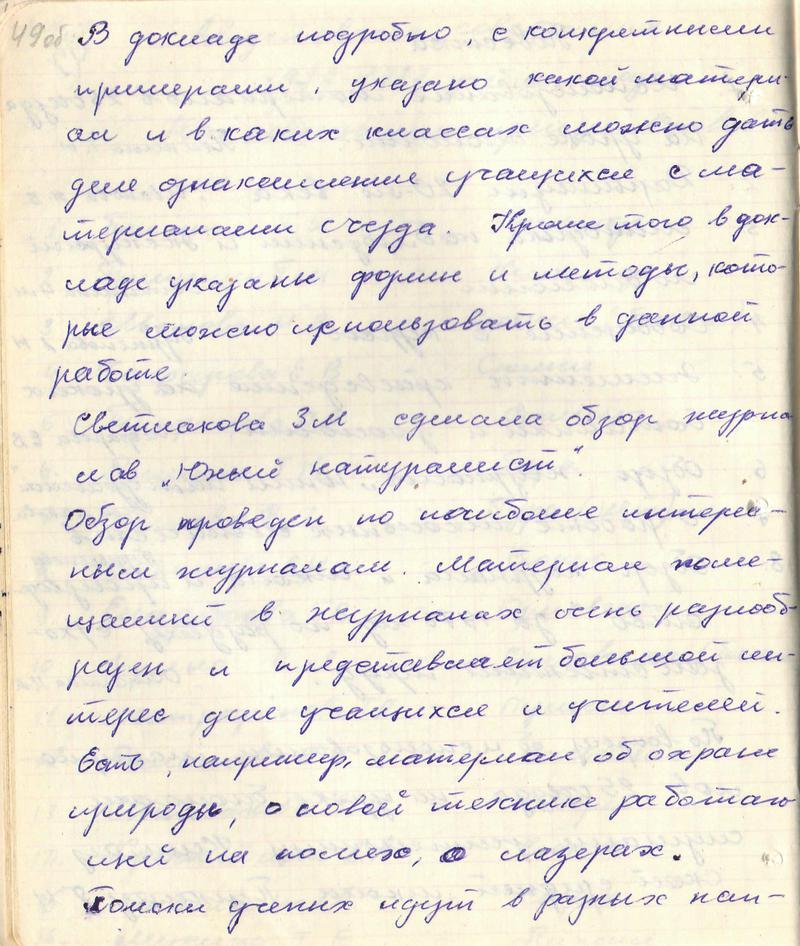 49об
В докладе подробно, с конкретными
примерами, указано какой матери-
ал и в каких классах можно дать
для ознакомления учащихся с ма-
териалами съезда. Кроме того в док-
ладе указаны формы и методы, кото-
рые можно использовать в данной
работе.
Светлакова З М сделала обзор журна
лов „Юный натуралист".
Обзор проведен по наиболее интерес-
ным журналам. Материал поме-
щаемый в журналах очень разнооб-
разен и представляет большой ин-
терес для учащихся и учителей.
Есть, например, материал об охране
природы, о новой технике работаю
щей на полях, о лазерах.
Поиски ученых идут в разных нап-